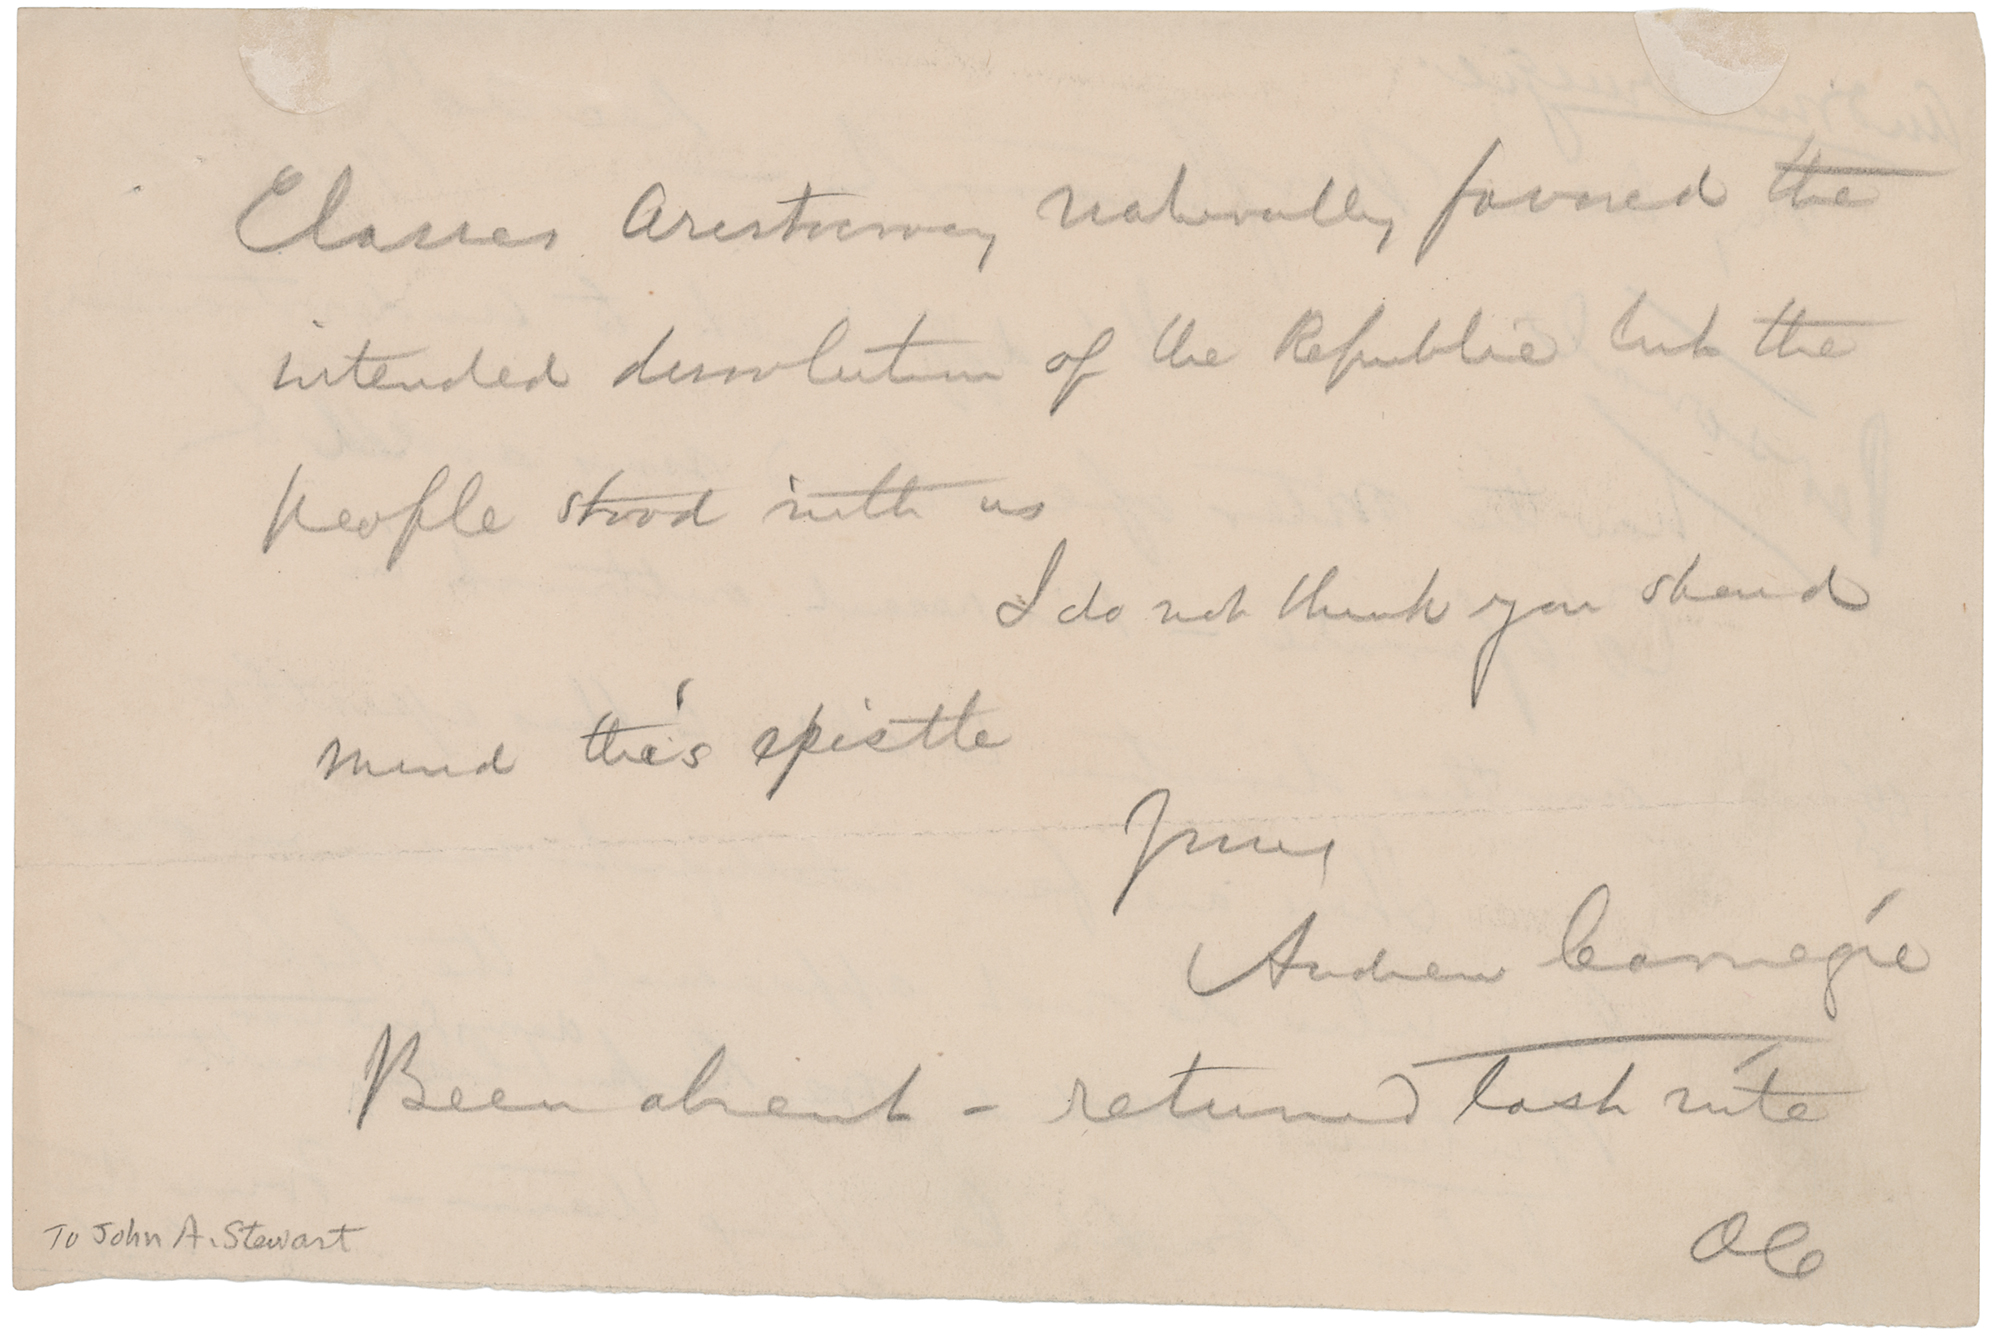 Classes Aristocracy naturally favored the
intended dissolution of the Republic but the
people stood with us
I do not think you should
mind this epistle
Yours
Andrew Carnegie
Been absent - returned last nite
AC
To John A. Stewart